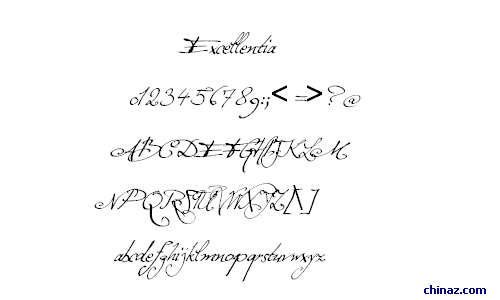 Excellentia
0123456789:;< => ?@
ABCDEFGHIJKLM
NPQRSTUVWXYZ[\]
abcdefghijklmnopqrstuvwxyz
chinaz.com